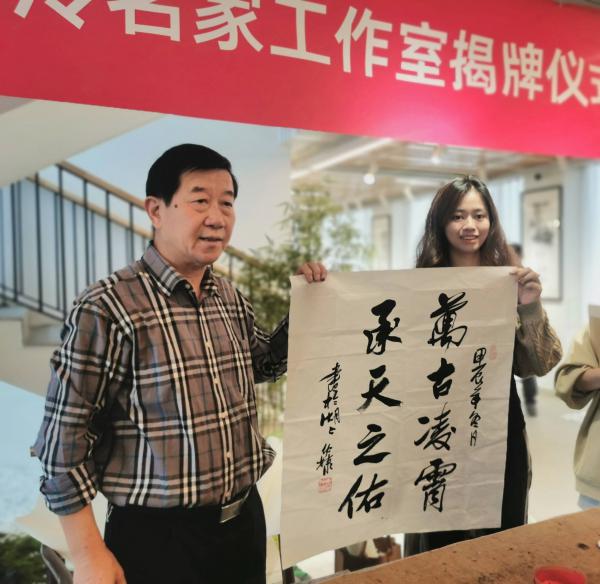 名家工作室揭牌仪式
甲辰年冬月
萬古凌霄
承天之佑
書於湖上